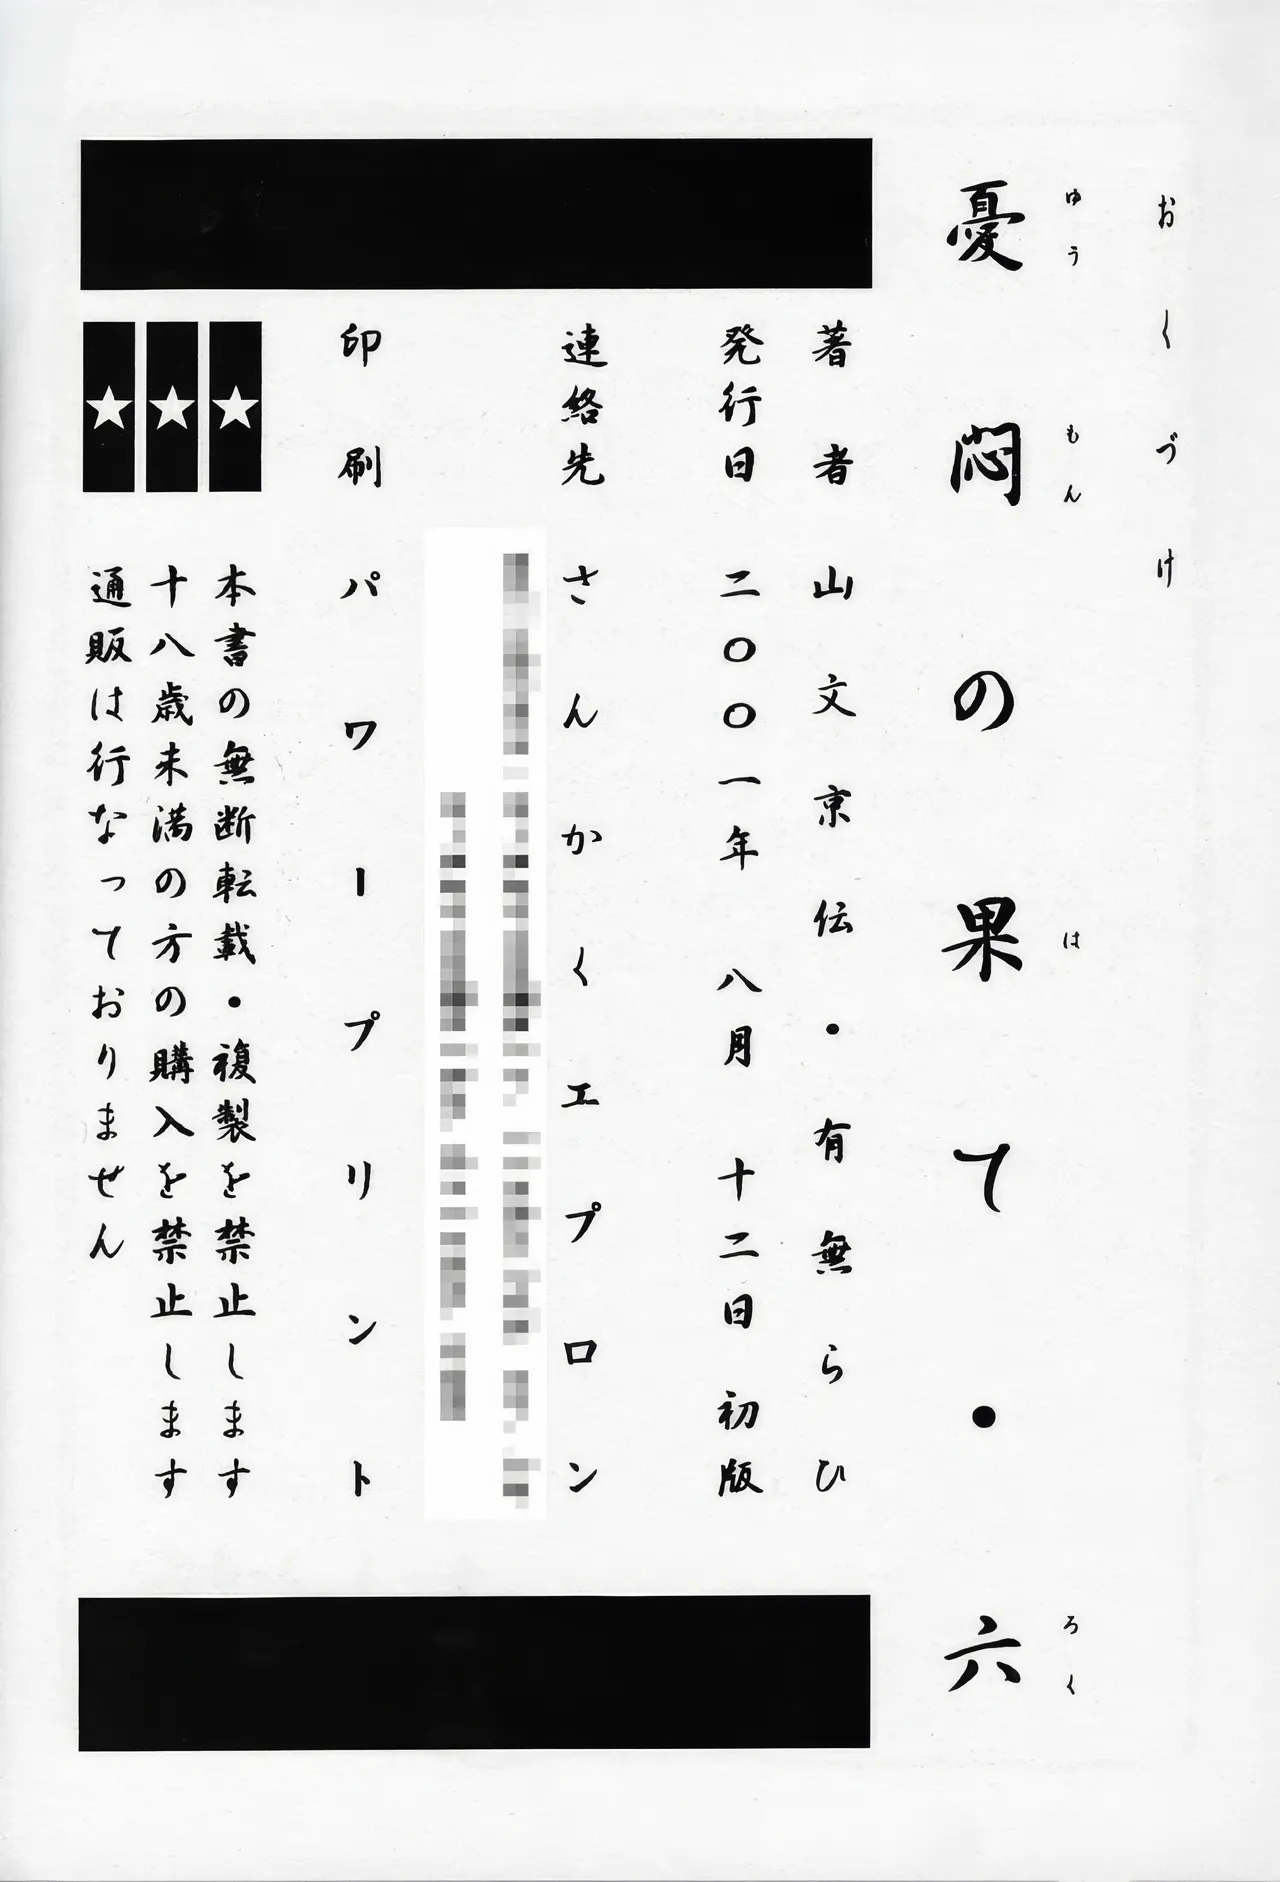 おくづけ
憂悶の果て・六
ゆうもんはろく
著者 山文京伝・有無らひ
発行日 二〇〇一年 八月 十二日 初版
連絡先 さんかくエプロン
印刷 パワープリント
★ 本書の無断転載・複製を禁止します
★ 十八歳未満の方の購入を禁止します
★ 通販は行なっておりません